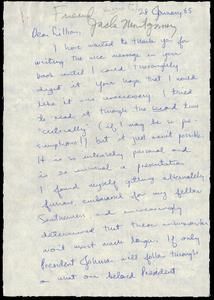 Friend
Jack Montgomery
28 January 65
Dear Lillian,
I have wanted to thank you for
writing the nice message in your
book until I could thoroughly
digest it. Your hope that I would
like it was unnecessary. I tried
to read it through the second time
"critically" (if I may be so pre-
sumptuous) but it just wasn't possible.
It is so intensely personal and
so unusual a presentation
I found myself getting alternately
furious, embarrassed for my fellow
Southerners and increasingly
determined that these
won't much longer. If only
President Johnson will follow through
on what our beloved President